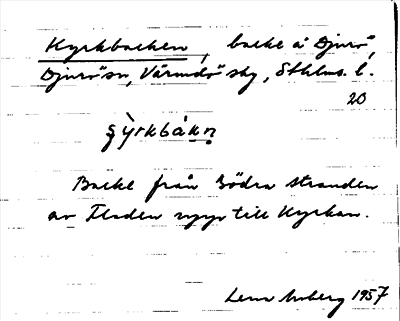 Kyrkbacken, backe å Djurö,
Djurö sn, Värmdö skg, Sthlms. l.
20
çỳrkbákn̥
Backe från Södra stranden
av Fladen upp till Kyrkan.
1957